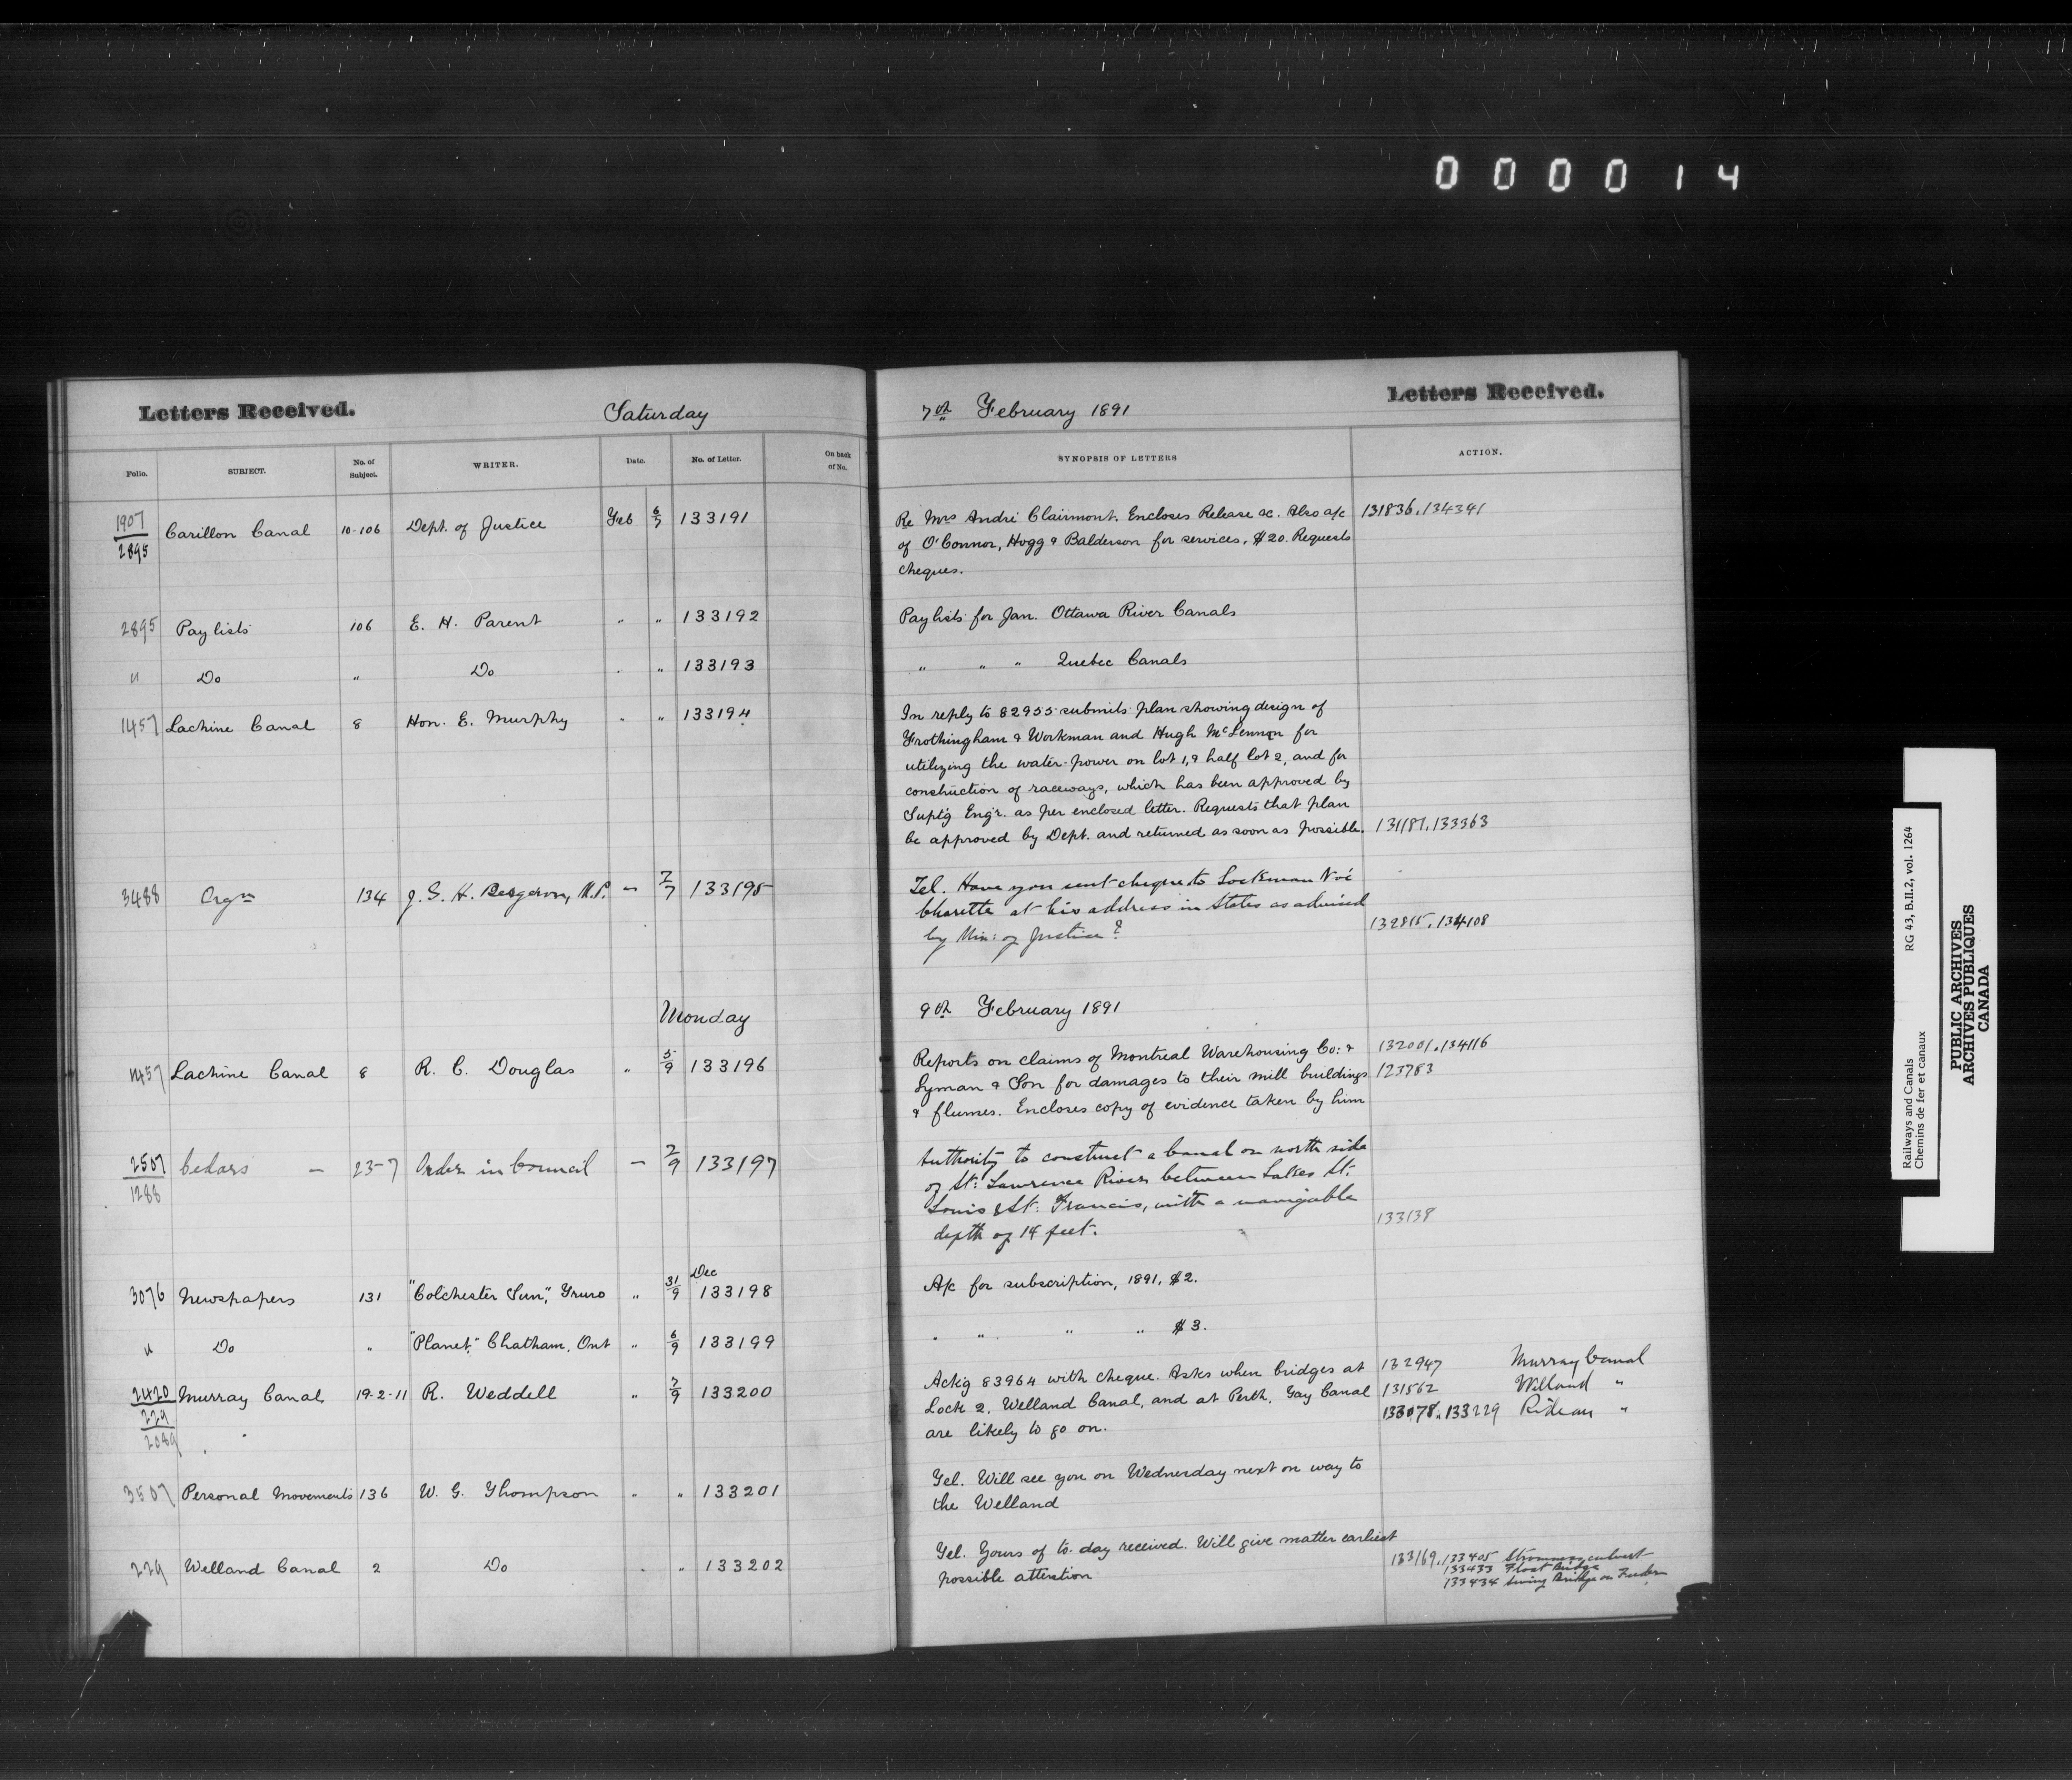 000014
Letters Received. Saturday 7th February 1891 Letters Received.
Folio. SUBJECT. No. of Subject. WRITER. Date. No. of Letter. On back of No. SYNOPSIS OF LETTERS ACTION.
1907/2895 Carillon Canal 10-106 Dept. of Justice Feb 6/7 133191 Re Mrs André Clairmont. Encloses Release &c. Also a/c 131836, 134391
of O'Connor, Hogg & Balderson for services, $20. Requests
cheques.
2895 Pay lists 106 E. H. Parent " " 133192 Pay lists for Jan. Ottawa River Canals
" Do " Do " " 133193 " " " Quebec Canals
1457 Lachine Canal 8 Hon. E. Murphy " " 133194 In reply to 82955 submits plan showing design of
Frothingham & Workman and Hugh McLennon for
utilizing the water-power on lot 1, & half lot 2, and for
construction of raceways, which has been approved by
Supt'g Eng'r. as per enclosed letter. Requests that plan
be approved by Dept. and returned as soon as possible. 131187, 133363
3488 Orgn 134 J. G. H. Bergeron, M.P. " 7/7 133195 Tel. Have you sent cheque to Lockman Noé
Charette at his address in States as advised
by Min: of Justice? 132815, 134108
Monday 9th February 1891
1457 Lachine Canal 8 R. C. Douglas " 5/9 133196 Reports on claims of Montreal Warehousing Co: & 132001, 134116
Lyman & Son for damages to their mill buildings 123783
& flumes. Encloses copy of evidence taken by him
2507/1288 Cedars - 23-7 Order in Council - 7/9 133197 Authority to construct a Canal on north side
of St: Lawrence River between Lakes St:
Louis & St: Francis, with a navigable
depth of 14 feet. 133138
3076 Newspapers 131 "Colchester Sun", Truro " 31/9 Dec 133198 A/c for subscription, 1891, $2.
" Do " "Planet," Chatham, Ont " 6/9 133199 " " " " $3.
2420/229/2089 Murray Canal 19-2-11 R. Weddell " 7/9 133200 Ack'g 83964 with cheque. Asks when bridges at 132947 Murray Canal
Lock 2, Welland Canal, and at Perth, Tay Canal 131562 Welland "
are likely to go on. 133078, 133229 Rideau "
3507 Personal Movements 136 W. G. Thompson " " 133201 Tel. Will see you on Wednesday next on way to
the Welland
229 Welland Canal 2 Do " " 133202 Tel. Yours of to-day received. Will give matter earliest
possible attention 133169, 133405 culvert
133433 Float Bridge
133434 Swing Bridge on Feeder
Railways and Canals RG 43, B.II.2, vol. 1264
Chemins de fer et canaux
PUBLIC ARCHIVES
ARCHIVES PUBLIQUES
CANADA